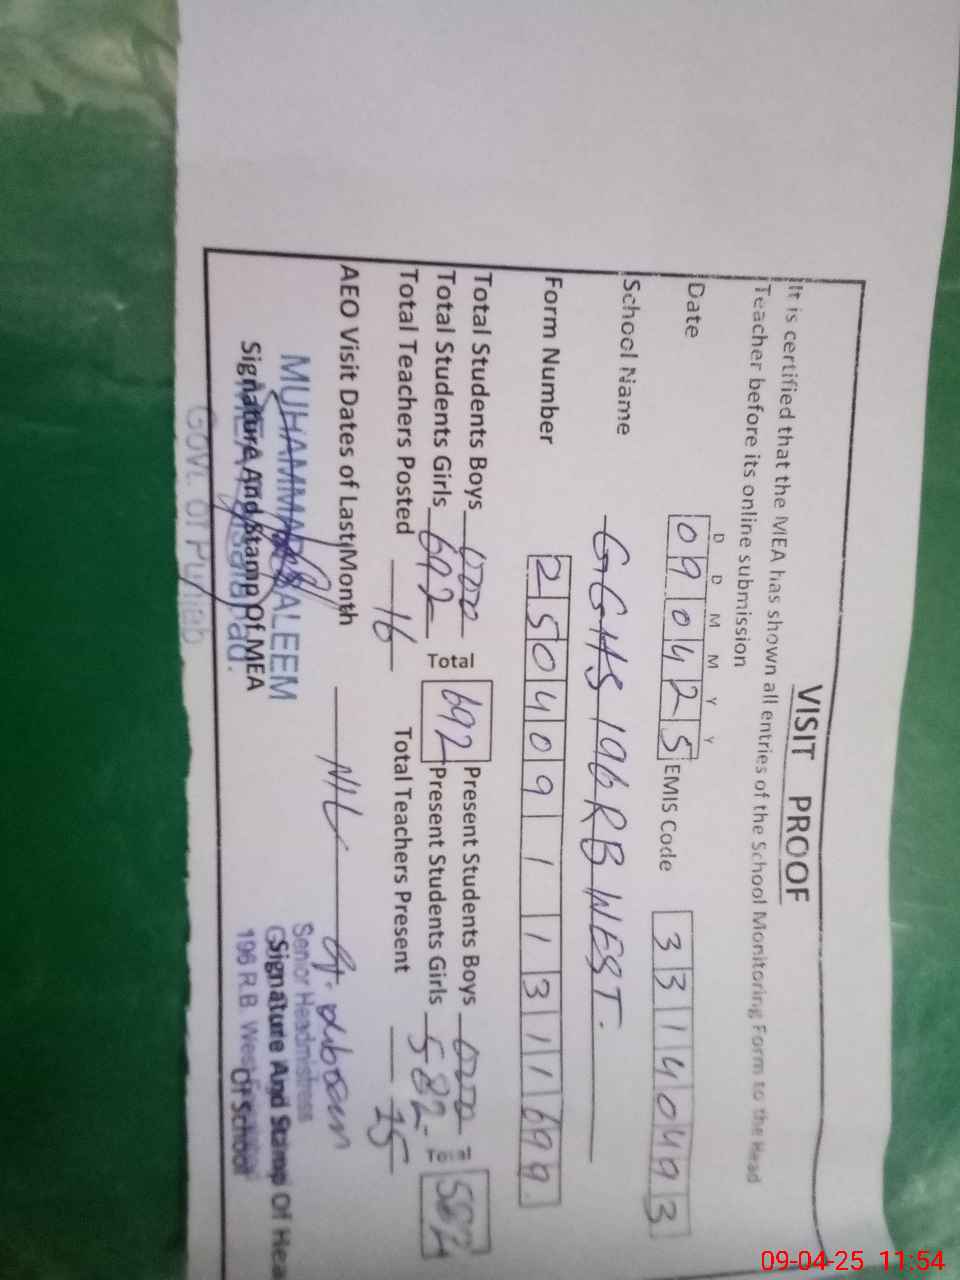 VISIT PROOF
It is certified that the MEA has shown all entries of the School Monitoring Form to the Head
Teacher before its online submission
D D M M Y Y
Date 090425 EMIS Code 33140493
School Name GGHS 196 RB WEST.
Form Number 25040911311699
Total Students Boys 000 Total 692 Present Students Boys 000 582
Total Students Girls 692 Present Students Girls 582
Total Teachers Posted 16 Total Teachers Present 15
AEO Visit Dates of Last Month NIL
MUHAMMAD SALEEM Senior Headmistress
Signature And Stamp Of MEA Signature And Stamp Of Hea
MEA Faisalabad. 196 R.B. West Of School
Govt. of Punjab
09-04-25 11:54